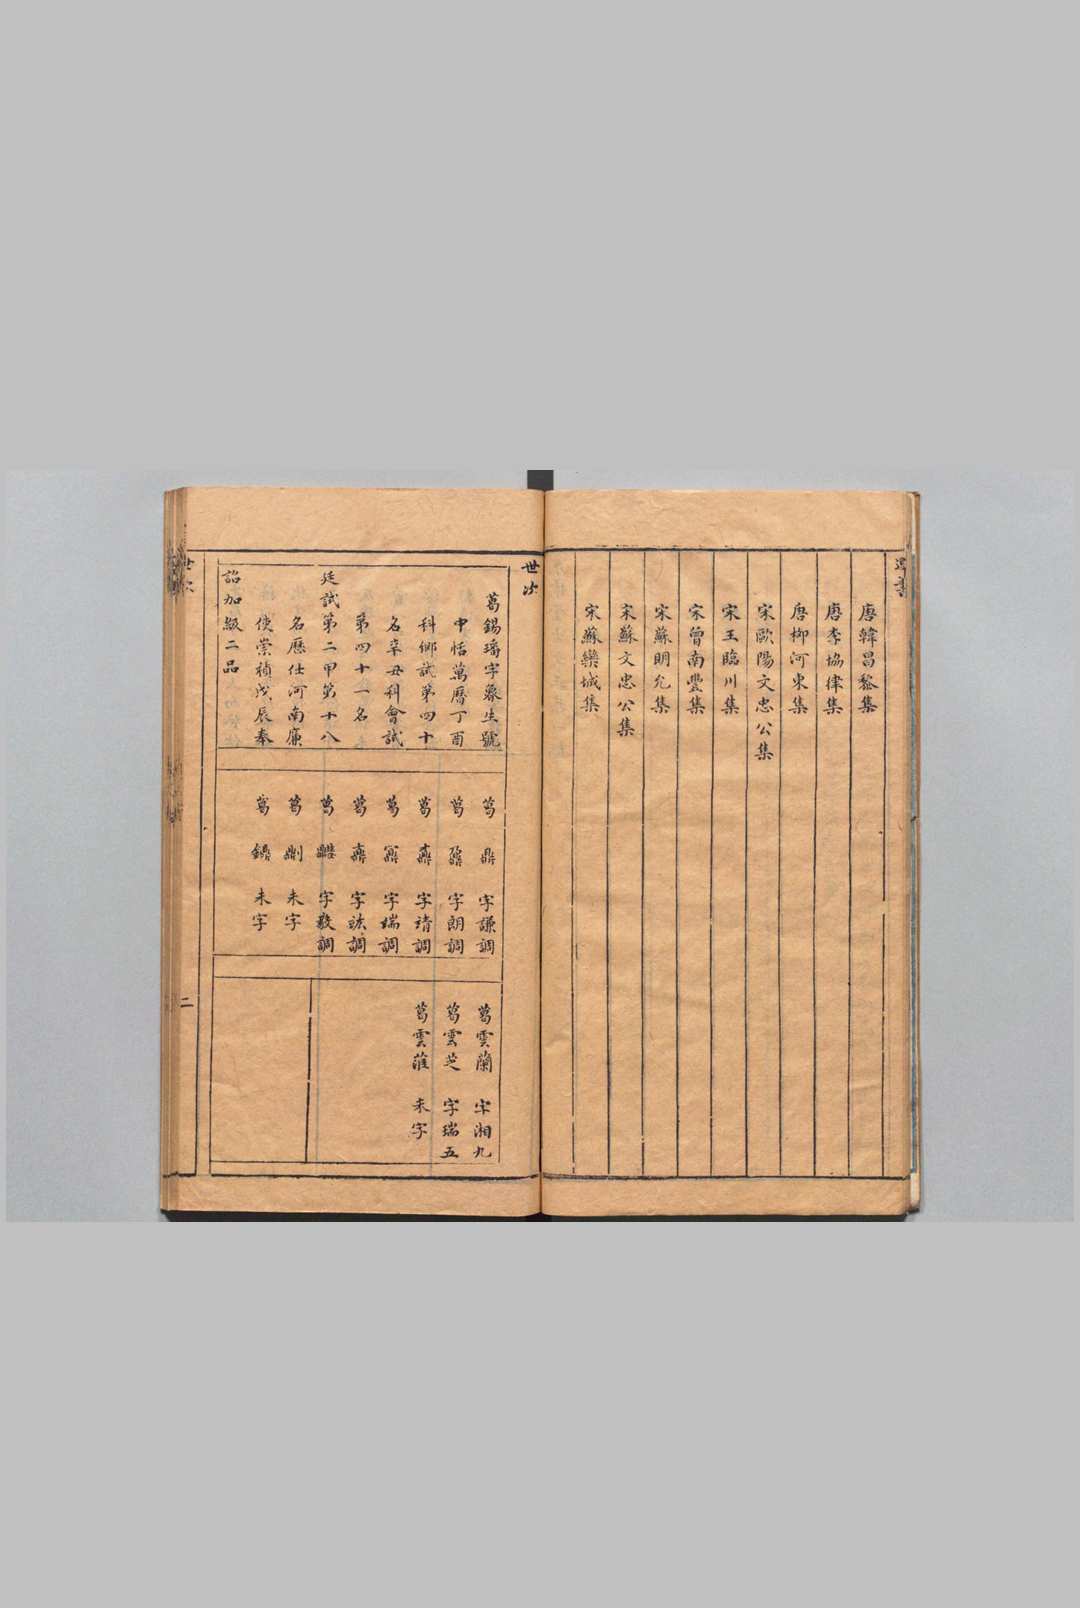 選書
唐韓昌黎集
唐李協律集
唐柳河東集
宋歐陽文忠公集
宋王臨川集
宋曾南豐集
宋蘇明允集
宋蘇文忠公集
宋蘇欒城集
世次
葛錫璠字彝生號
中恬萬曆丁酉
科鄉試第四十
名辛丑科會試
第四十一名
廷試第二甲第十八
名歷仕河南廉
使崇禎戊辰奉
詔加級二品
葛鼎 字謙調
葛鼐 字朗調
葛 字靖調
葛 字端調
葛 字竑調
葛 字數調
葛 未字
葛 未字
葛雲蘭 字湘九
葛雲芝 字瑞五
葛雲 未字
世次
二